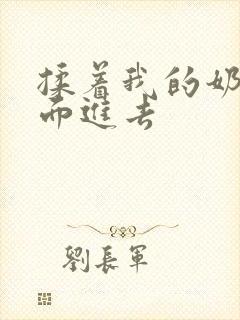 揉着我的奶
而進去
劉長軍